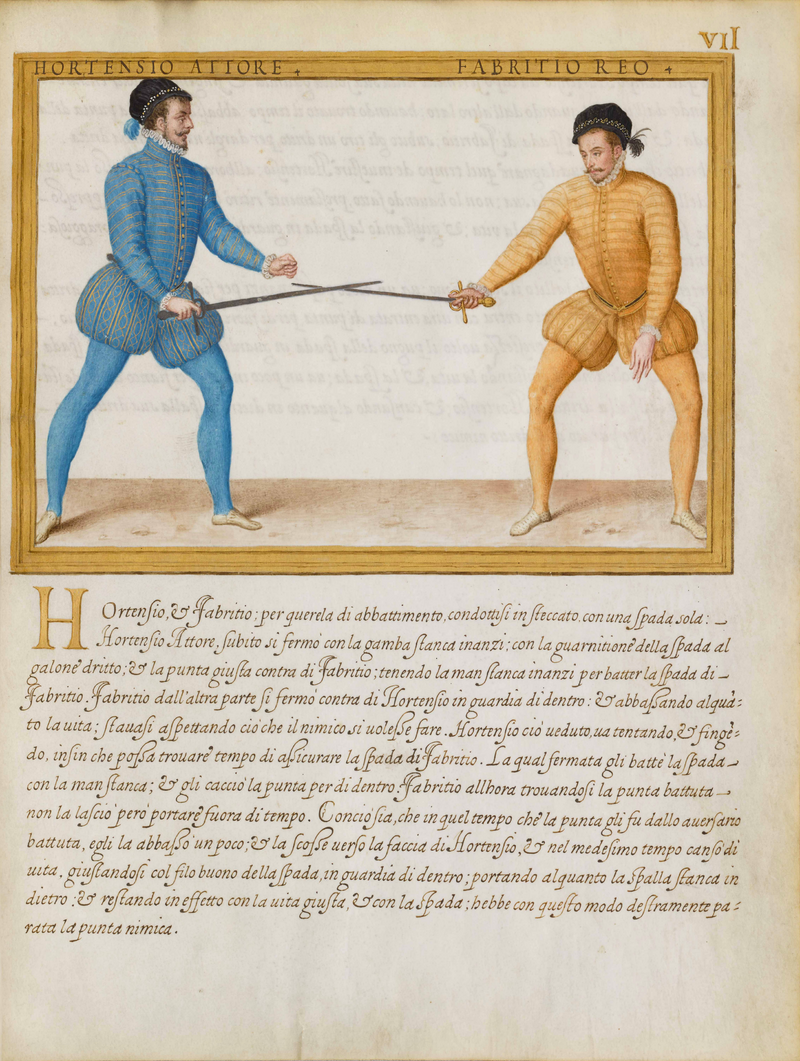 VII
HORTENSIO ATTORE
FABRITIO REO
HOrtensio, & Fabritio; per querela di abbattimento, condottisi in steccato, con una spada sola:
Hortensio Attore, subito si fermò con la gamba stanca inanzi; con la guarnitione della spada al
galone dritto; & la punta giusta contra di Fabritio; tenendo la man stanca inanzi per batter la spada di
Fabritio. Fabritio dall'altra parte si fermò contra di Hortensio in guardia di dentro: & abbassando alquã=
to la uita; stauasi aspettando ciò che il nimico si uolesse fare. Hortensio ciò ueduto, ua tentando, & fingẽ=
do, insin che possa trouare tempo di assicurare la spada di Fabritio. La qual fermata gli batte la spada
con la man stanca; & gli cacciò la punta per di dentro. Fabritio allhora trouandosi la punta battuta
non la lasciò però portare fuora di tempo. Conciosia, che in quel tempo che la punta gli fu dallo auersario
battuta, egli la abbassò un poco; & la scosse uerso la faccia di Hortensio, & nel medesimo tempo cansò di
uita, giustandosi col filo buono della spada, in guardia di dentro; portando alquanto la spalla stanca in
dietro; & restando in effetto con la uita giusta, & con la spada; hebbe con questo modo destramente pa=
rata la punta nimica.